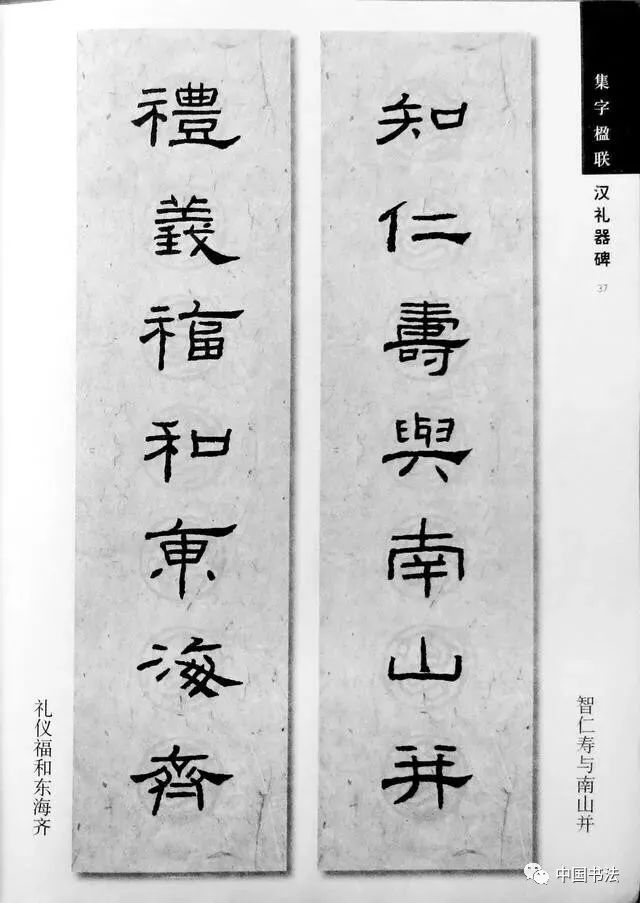 集字楹联
汉礼器碑
37
知仁壽與南山并
智仁寿与南山并
禮義福和東海齊
礼仪福和东海齐
中国书法